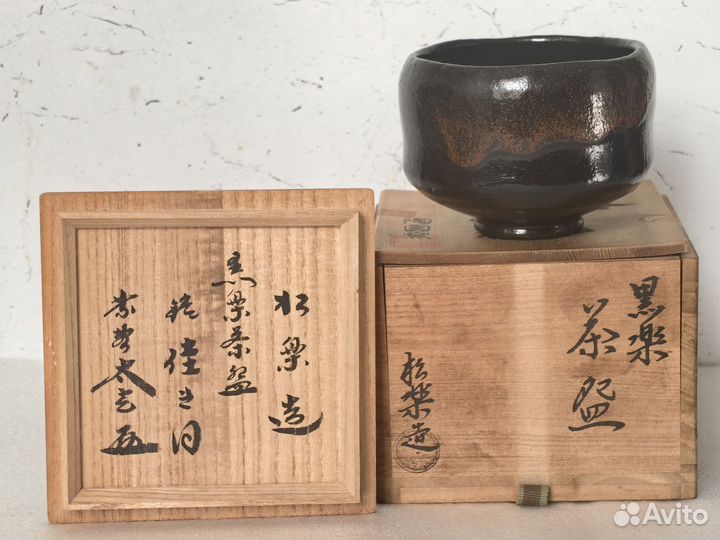 松楽造
黒楽茶盌
銘 佳き日
黒楽
茶盌
松楽造
Avito